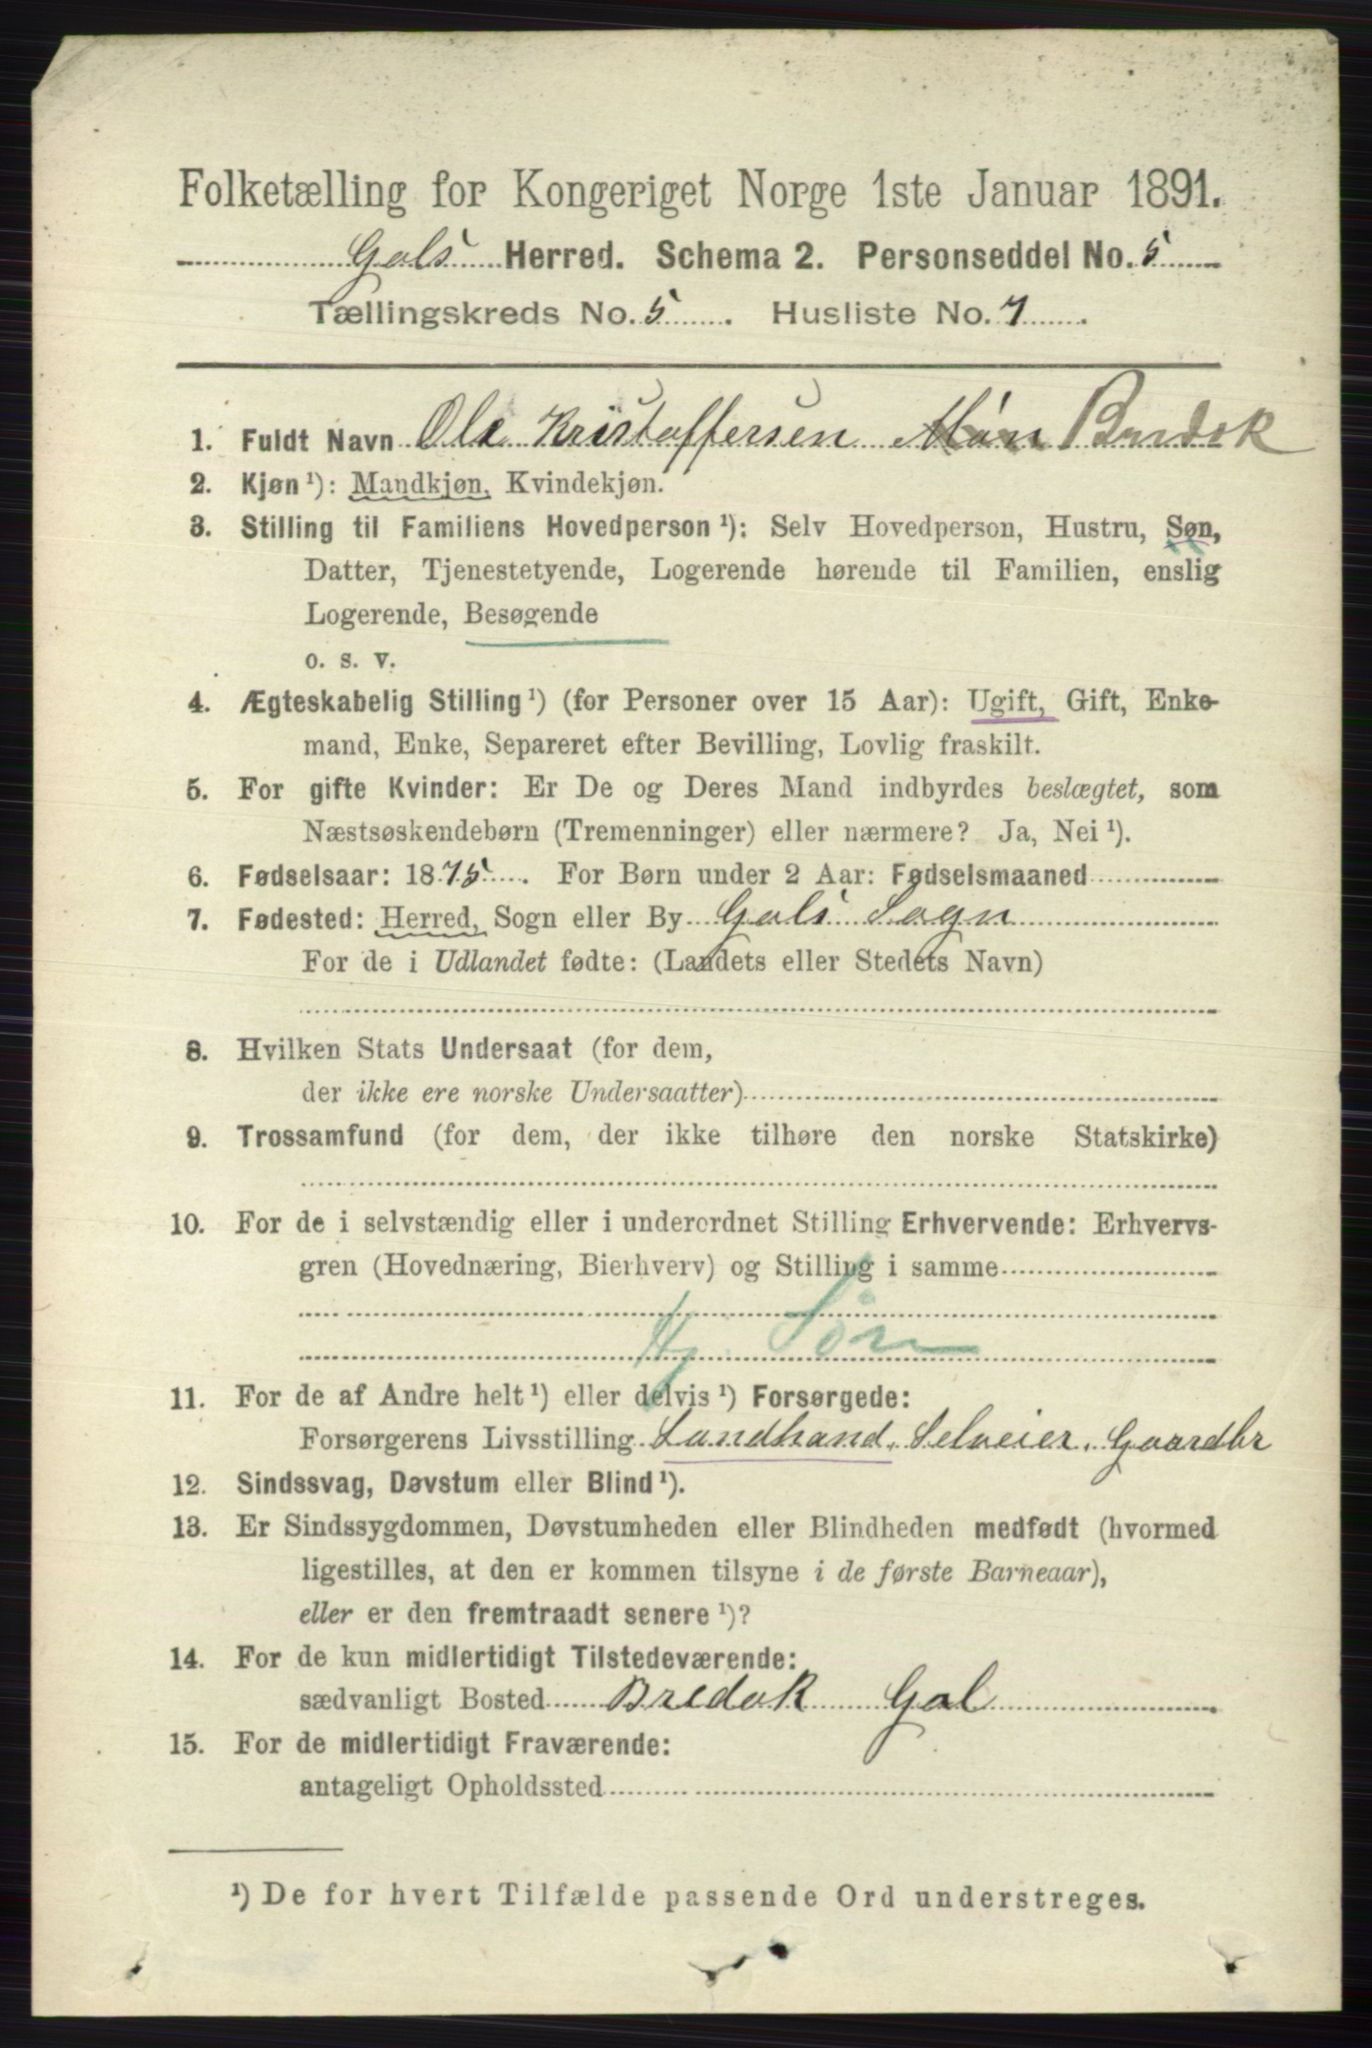 Folketælling for Kongeriget Norge 1ste Januar 1891.
Gols Herred. Schema 2. Personseddel No. 5
Tællingskreds No. 5. Husliste No. 7.
1. Fuldt Navn Ole Kristoffersen Bredok
2. Kjøn¹): Mandkjøn, Kvindekjøn.
3. Stilling til Familiens Hovedperson¹): Selv Hovedperson, Hustru, Søn,
Datter, Tjenestetyende, Logerende hørende til Familien, enslig
Logerende, Besøgende
o. s. v.
4. Ægteskabelig Stilling¹) (for Personer over 15 Aar): Ugift, Gift, Enke-
mand, Enke, Separeret efter Bevilling, Lovlig fraskilt.
5. For gifte Kvinder: Er De og Deres Mand indbyrdes beslægtet, som
Næstsøskendebørn (Tremenninger) eller nærmere? Ja, Nei¹).
6. Fødselsaar: 1875. For Børn under 2 Aar: Fødselsmaaned
7. Fødested: Herred, Sogn eller By Gols Sogn
For de i Udlandet fødte: (Landets eller Stedets Navn)
8. Hvilken Stats Undersaat (for dem,
der ikke ere norske Undersaatter)
9. Trossamfund (for dem, der ikke tilhøre den norske Statskirke)
10. For de i selvstændig eller i underordnet Stilling Erhvervende: Erhvervs-
gren (Hovednæring, Bierhverv) og Stilling i samme
Hj. Søn
11. For de af Andre helt¹) eller delvis¹) Forsørgede:
Forsørgerens Livsstilling Landhand. Selveier. Gaardbr
12. Sindssvag, Døvstum eller Blind¹).
13. Er Sindssygdommen, Døvstumheden eller Blindheden medfødt (hvormed
ligestilles, at den er kommen tilsyne i de første Barneaar),
eller er den fremtraadt senere¹)?
14. For de kun midlertidigt Tilstedeværende:
sædvanligt Bosted Bredok Gol
15. For de midlertidigt Fraværende:
antageligt Opholdssted
¹) De for hvert Tilfælde passende Ord understreges.